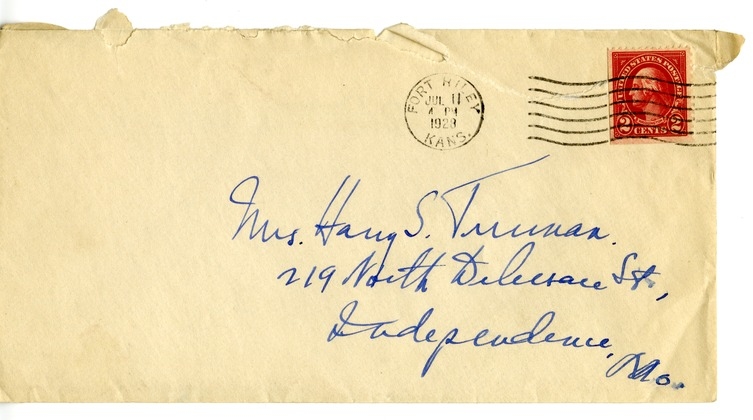 FORT RILEY
JUL 11
4 PM
1928
KANS.
UNITED STATES POSTAGE
2 CENTS 2
Mrs. Harry S. Truman.
219 North Delaware St.,
Independence,
Mo.